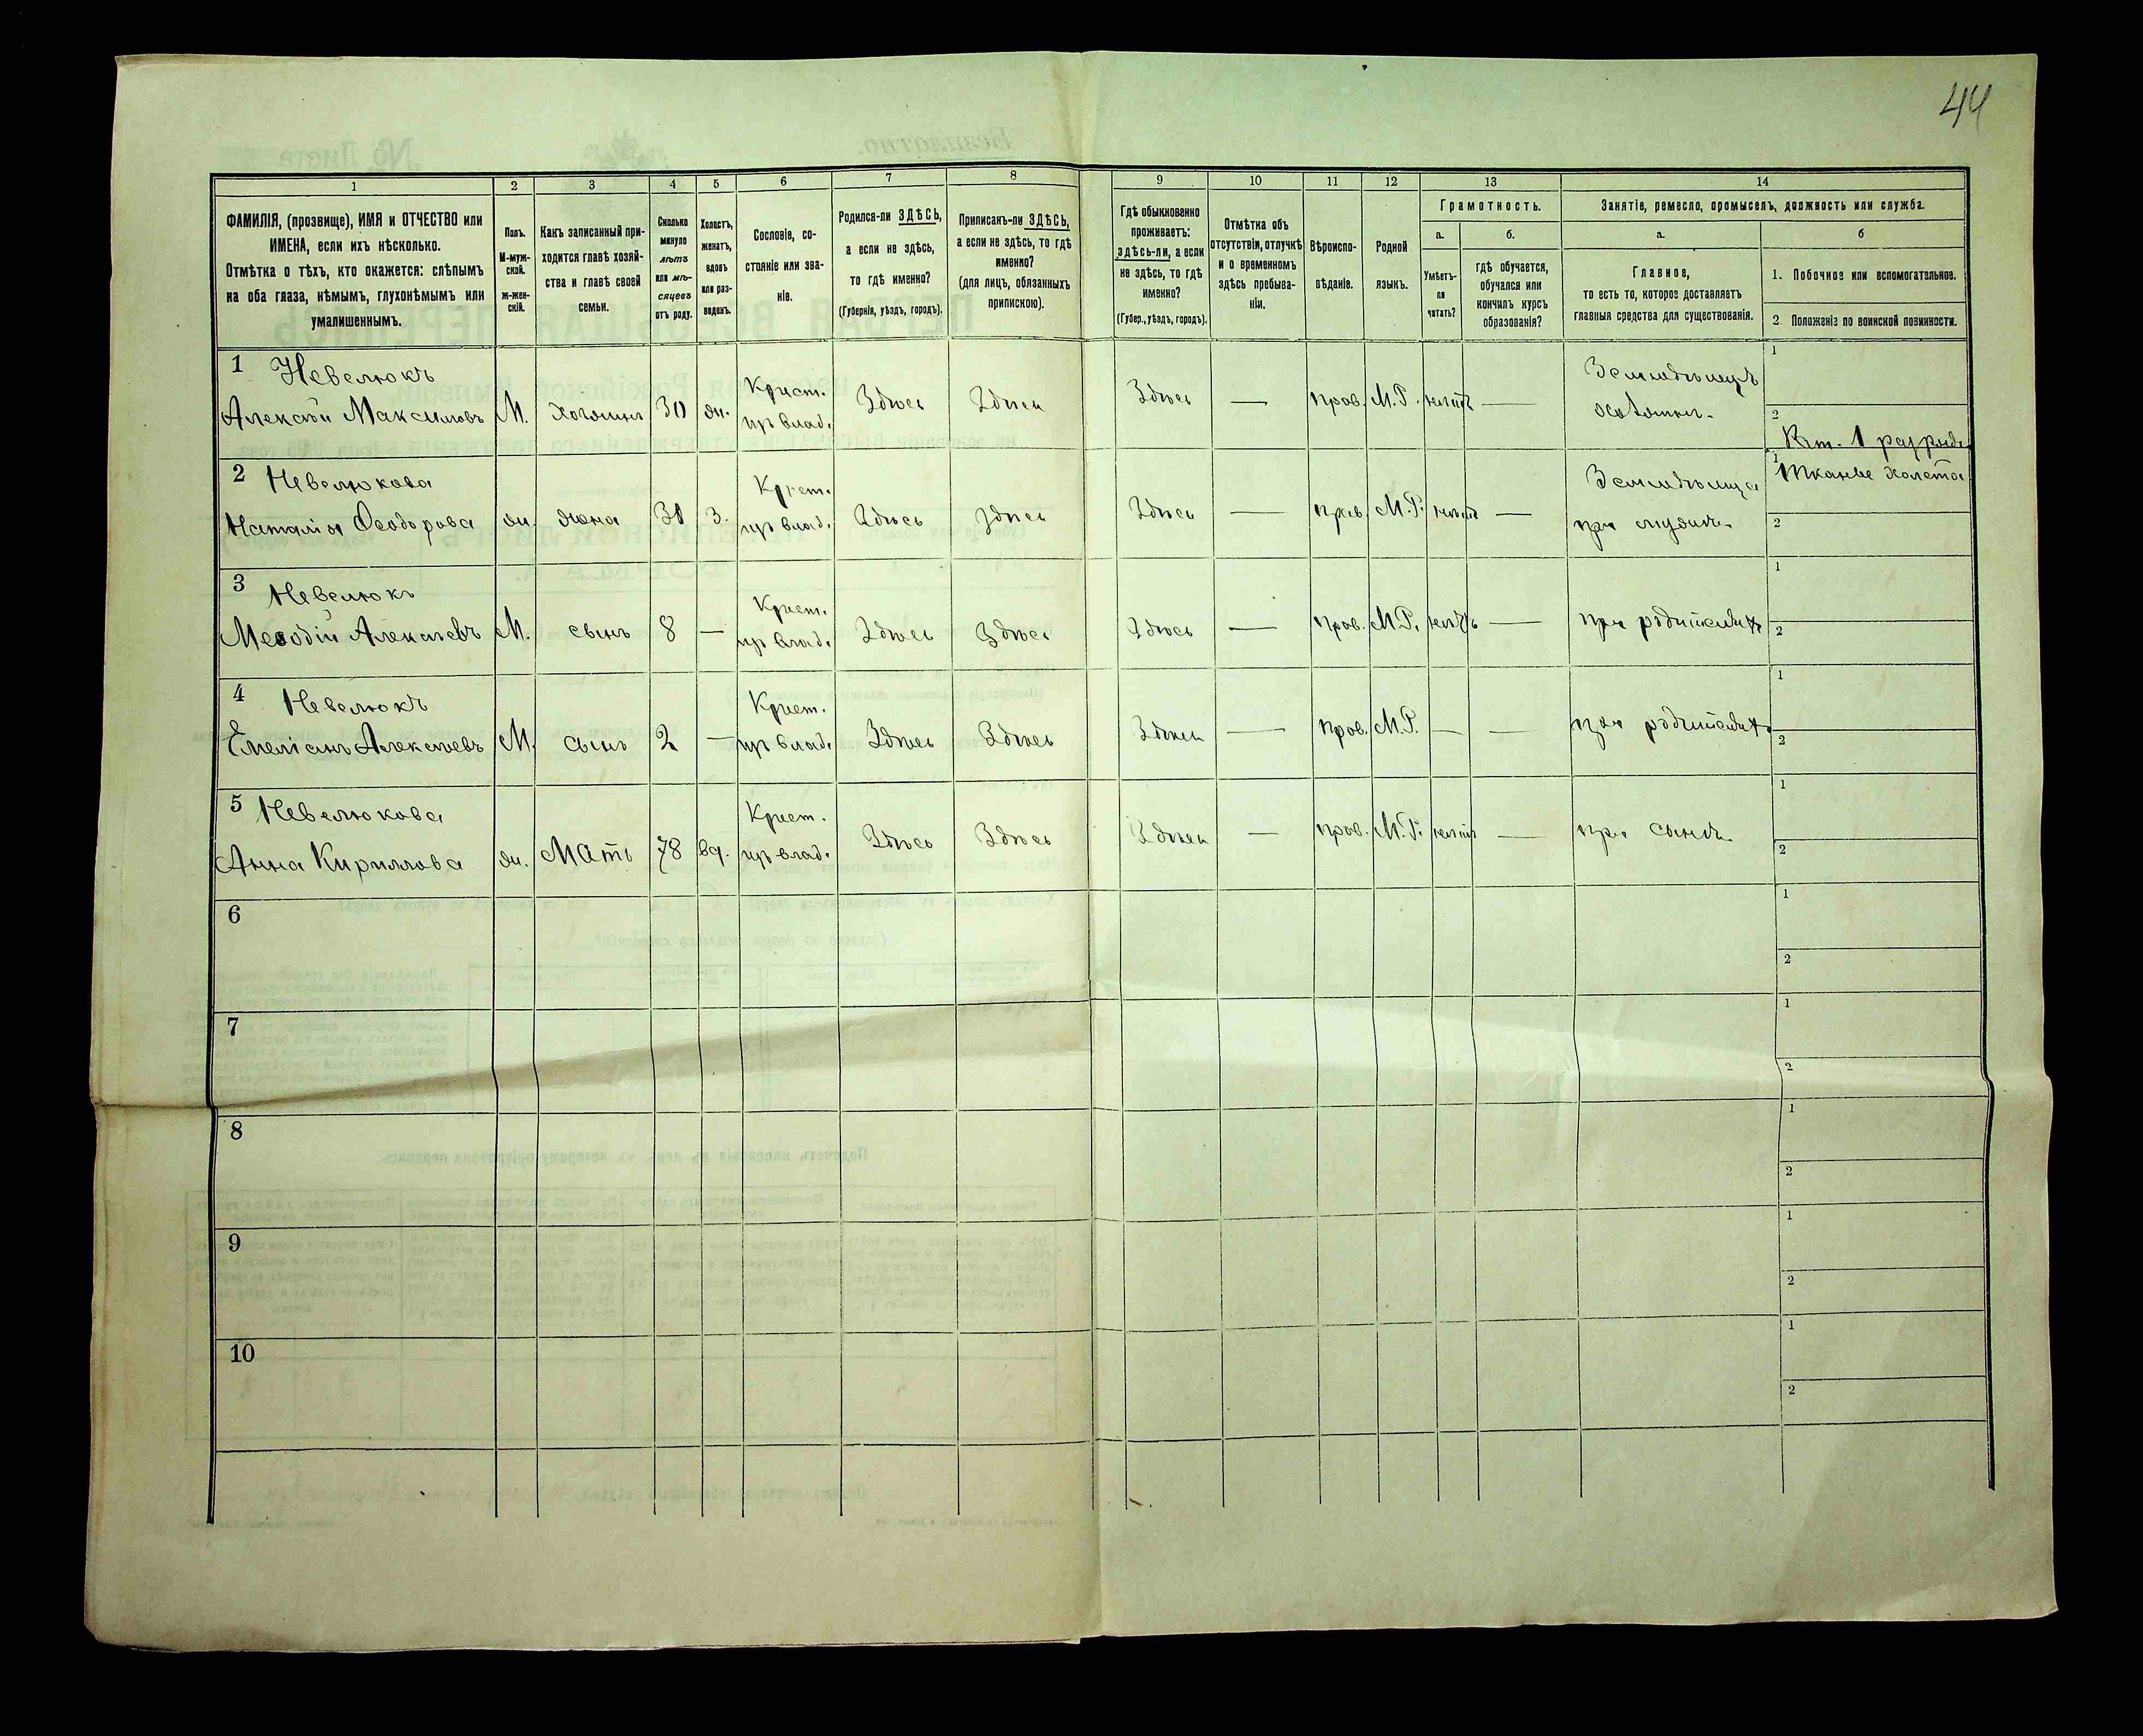 44
1 2 3 4 5 6 7 8 9 10 11 12 13 14
ФАМИЛІЯ, (прозвище), ИМЯ и ОТЧЕСТВО или
ИМЕНА, если ихъ нѣсколько.
Отмѣтка о тѣхъ, кто окажется: слѣпымъ
на оба глаза, нѣмымъ, глухонѣмымъ или
умалишеннымъ.
Полъ.
М-муж-
ской.
Ж-жен-
скій.
Какъ записанный при-
ходится главѣ хозяй-
ства и главѣ своей
семьи.
Сколько
минуло
лѣтъ
или мѣ-
сяцевъ
отъ роду.
Холостъ,
женатъ,
вдовъ
или раз-
веденъ.
Сословіе, со-
стояніе или зва-
ніе.
Родился-ли ЗДѢСЬ,
а если не здѣсь,
то гдѣ именно?
(Губернія, уѣздъ, городъ).
Приписанъ-ли ЗДѢСЬ,
а если не здѣсь, то гдѣ
именно?
(для лицъ, обязанныхъ
припискою).
Гдѣ обыкновенно
проживаетъ:
здѣсь-ли, а если
не здѣсь, то гдѣ
именно?
(Губер., уѣздъ, городъ).
Отмѣтка объ
отсутствіи, отлучкѣ
и о временномъ
здѣсь пребыва-
ніи.
Вѣроиспо-
вѣданіе.
Родной
языкъ.
Грамотность.
а.
Умѣетъ-
ли
читать?
б.
гдѣ обучается,
обучался или
кончилъ курсъ
образованія?
Занятіе, ремесло, промыселъ, должность или служба
а.
Главное,
то есть то, которое доставляетъ
главныя средства для существованія.
б
1. Побочное или вспомогательное.
2. Положеніе по воинской повинности.
1 Невелюкъ
Алексѣй Максимовъ М. хозяинъ 30 ж. Крест. изъ влад. Здѣсь Здѣсь Здѣсь — прав. М.Р. нѣтъ — Земледѣлецъ
хозяинъ 1
2 Рат. 1 разряда
2 Невелюкова
Наталія Ѳеодорова ж. жена 31 З. Крест. изъ влад. Здѣсь Здѣсь Здѣсь — прав. М.Р. нѣтъ — Земледѣлица
при мужѣ 1 Тканье холста
2
3 Невелюкъ
Меѳодій Алексѣевъ М. сынъ 8 — Крест. изъ влад. Здѣсь Здѣсь Здѣсь — прав. М.Р. нѣтъ — при родителяхъ 1
2
4 Невелюкъ
Емеліанъ Алексѣевъ М. сынъ 2 — Крест. изъ влад. Здѣсь Здѣсь Здѣсь — прав. М.Р. — — при родителяхъ 1
2
5 Невелюкова
Анна Кириллова ж. Мать 78 вд. Крест. изъ влад. Здѣсь Здѣсь Здѣсь — прав. М.Р. нѣтъ — при сынѣ 1
2
6 1
2
7 1
2
8 1
2
9 1
2
10 1
2